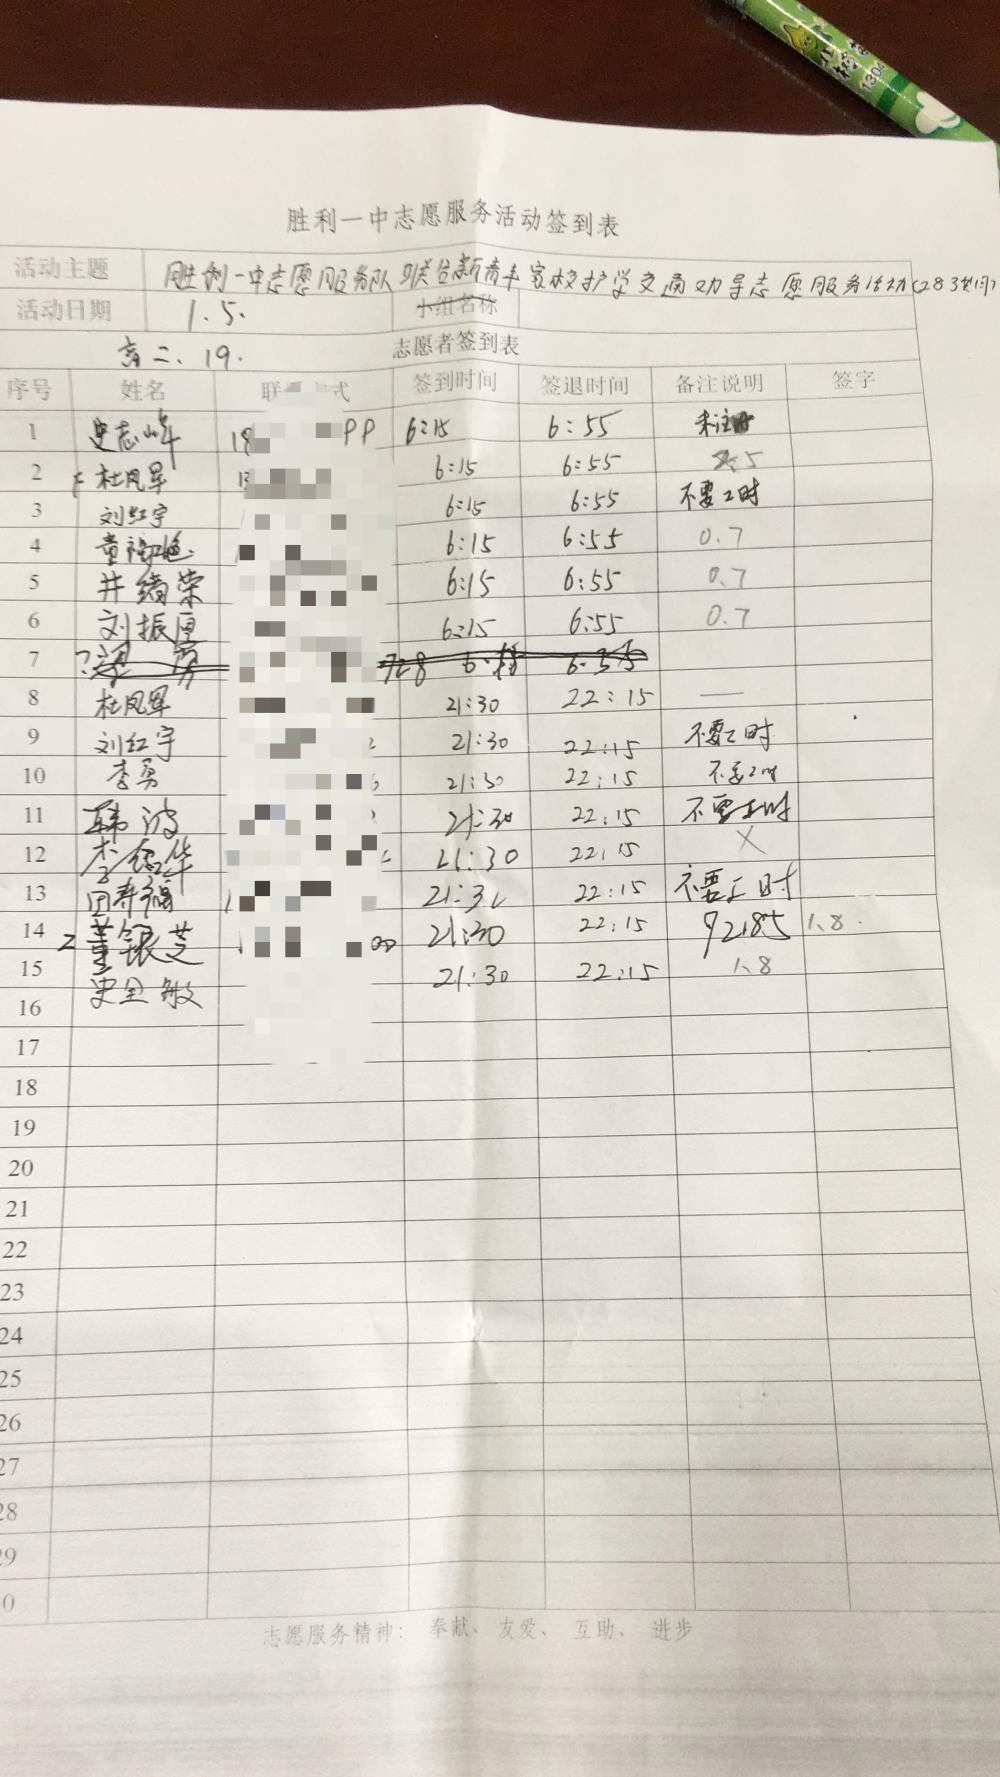 小树苗 1304
胜利一中志愿服务活动签到表
活动主题 胜利一中志愿服务队联合新青年家校护学交通劝导志愿服务活动(283期)
活动日期 1.5. 小组名称
高二.19. 志愿者签到表
序号 姓名 联 式 签到时间 签退时间 备注说明 签字
1 史志峰 18 PP 6:15 6:55 未注册
2 杜凤军 6:15 6:55
3 刘红宇 6:15 6:55 不要工时
4 6:15 6:55 0.7
5 井绪荣 6:15 6:55 0.7
6 刘振厚 6:15 6:55 0.7
7 728
8 杜凤军 21:30 22:15 —
9 刘红宇 21:30 22:15 不要工时
10 李勇 21:30 22:15 不要工时
11 韩波 21:30 22:15 不要工时
12 21:30 22:15 X
13 田寿福 21:31 22:15 不要工时
14 董银芝 21:30 22:15 92185 1.8.
15 史全敏 21:30 22:15 1.8
16
17
18
19
20
21
22
23
24
25
26
27
28
29
0
志愿服务精神: 奉献、友爱、互助、进步